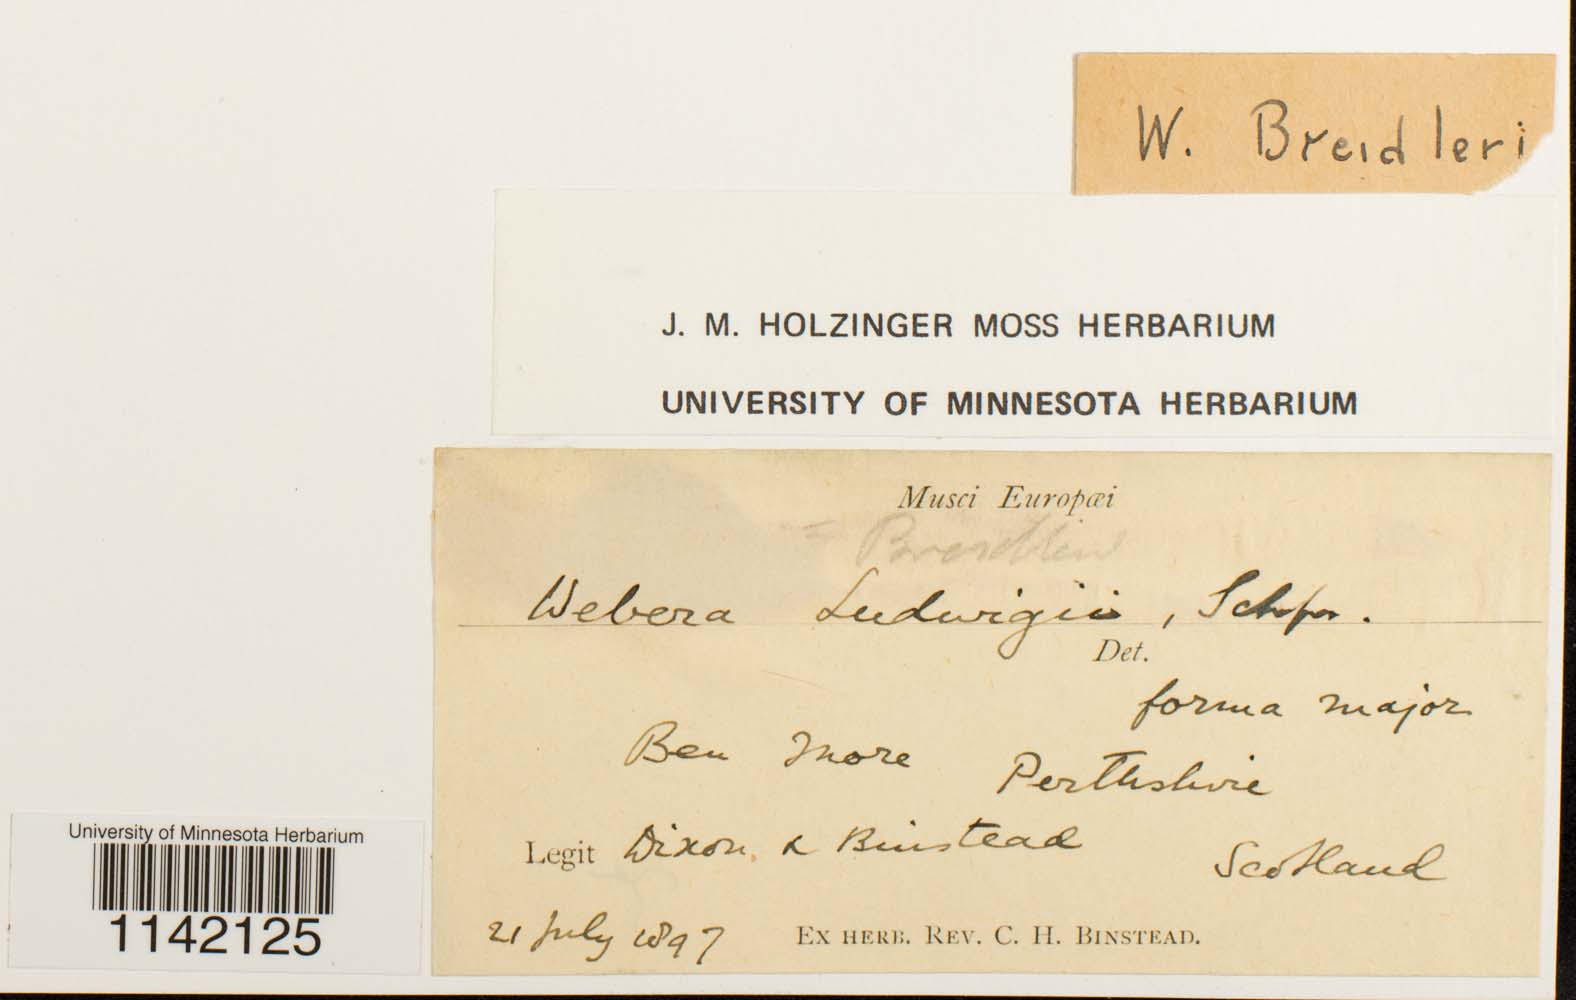 W. Breidleri
J. M. HOLZINGER MOSS HERBARIUM
UNIVERSITY OF MINNESOTA HERBARIUM
Musci Europæi
=
Webera Ludwigii, Schpr.
Det.
forma major
Ben More Perthshire
Legit Dixon & Binstead
Scotland
21 July 1897 EX HERB. REV. C. H. BINSTEAD.
University of Minnesota Herbarium
1142125